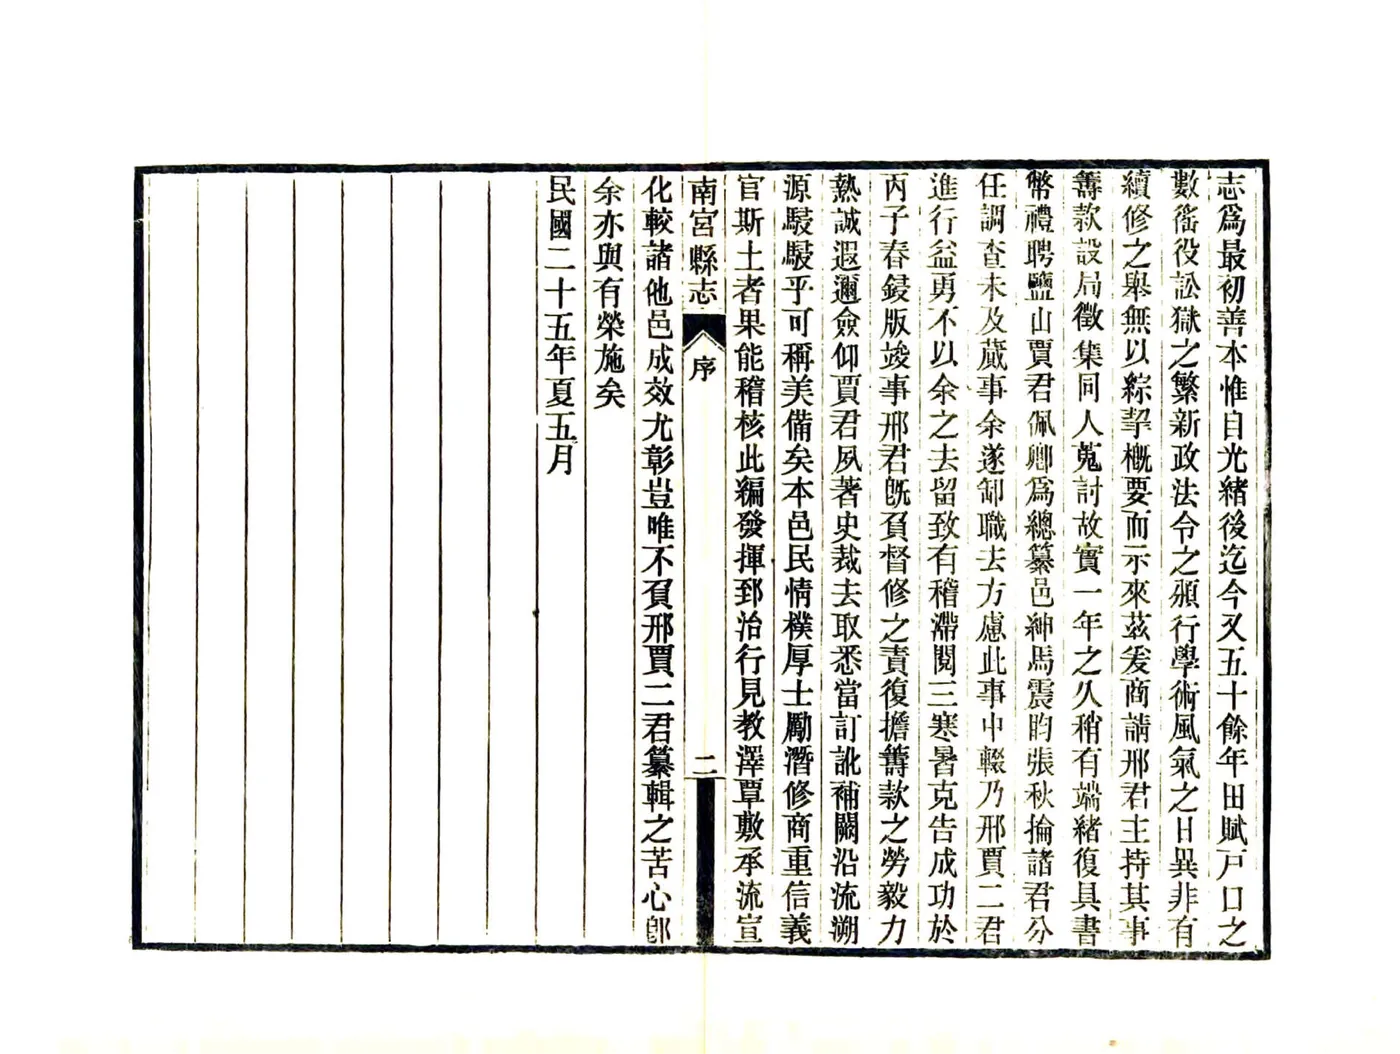 志爲最初善本惟自光緒後迄今又五十餘年田賦戸口之
數徭役訟獄之繁新政法令之頒行學術風氣之日異非有
續修之舉無以綜挈概要而示來茲爰商請邢君主持其事
籌款設局徵集同人蒐討故實一年之久稍有端緒復具書
幣禮聘鹽山賈君佩卿爲總纂邑紳馬震昀張秋掄諸君分
任調查未及蕆事余遂卸職去方慮此事中輟乃邢賈二君
進行益勇不以余之去留致有稽滯閱三寒暑克告成功於
丙子春鋟版竣事邢君旣負督修之責復擔籌款之勞毅力
熱誠遐邇僉仰賈君夙著史裁去取悉當訂訛補闕沿流溯
源駸駸乎可稱美備矣本邑民情樸厚士勵潛修商重信義
官斯土者果能稽核此編發揮郅治行見教澤覃敷承流宣
南宮縣志
序
二
化較諸他邑成效尤彰豈唯不負邢賈二君纂輯之苦心卽
余亦與有榮施矣
民國二十五年夏五月